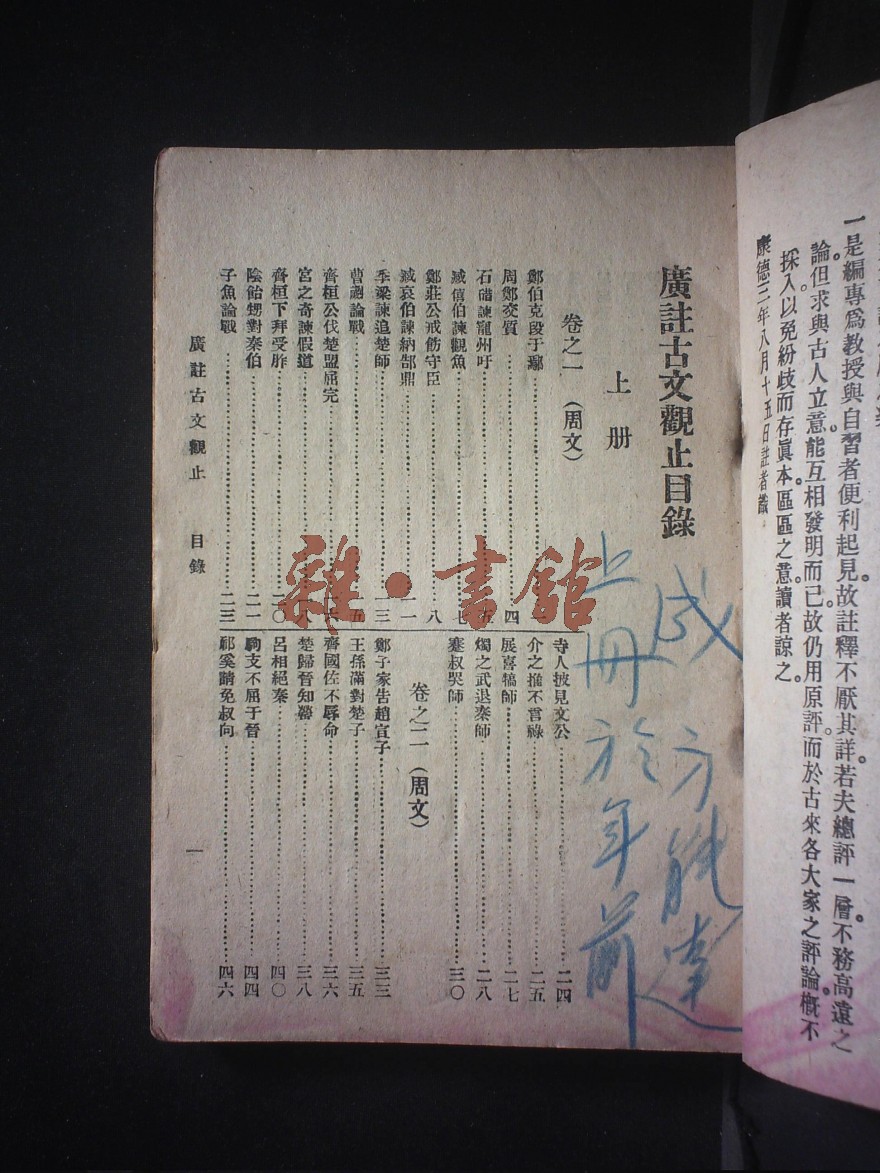 一是編專爲敎授與自習者便利起見。故註釋不厭其詳。若夫總評一層。不務高遠之
論。但求與古人立意。能互相發明而已。故仍用原評。而於古來各大家之評論。槪不
採入。以免紛歧。而存眞本。區區之意。讀者諒之。
康德三年八月十五日註者識
廣註古文觀止目錄
上册
卷之一（周文）
鄭伯克段于鄢
周鄭交質……四
石碏諫寵州吁……五
臧僖伯諫觀魚……七
鄭莊公戒飭守臣……八
臧哀伯諫納郜鼎……一一
季梁諫追楚師……一三
曹劌論戰……五
齊桓公伐楚盟屈完……六
宮之奇諫假道……八
齊桓下拜受胙……二〇
陰飴甥對秦伯……二一
子魚論戰……二三
寺人披見文公……二四
介之推不言祿……二五
展喜犒師……二七
燭之武退秦師……二八
蹇叔哭師……三〇
卷之二（周文）
鄭子家吿趙宣子……三三
王孫滿對楚子……三五
齊國佐不辱命……三六
楚歸晉知罃……三八
呂相絕秦……四〇
駒支不屈于晉……四四
祁奚請免叔向……四六
廣註古文觀止 目錄
一
成 方能達
上冊於年前
雜·書館